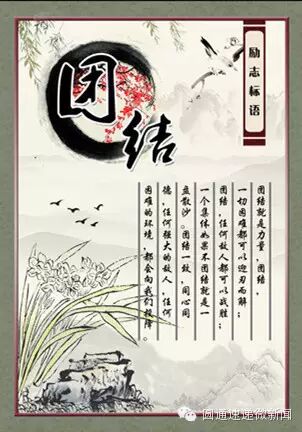 励志标语
团结
团结就是力量，团结，
一切困难都可以迎刃而解；
团结，任何敌人都可以战胜；
一个集体如果不团结就是一
盘散沙。团结一致，同心同
德，任何强大的敌人，任何
困难的环境，都会向我们投降。
圆通速递微新闻